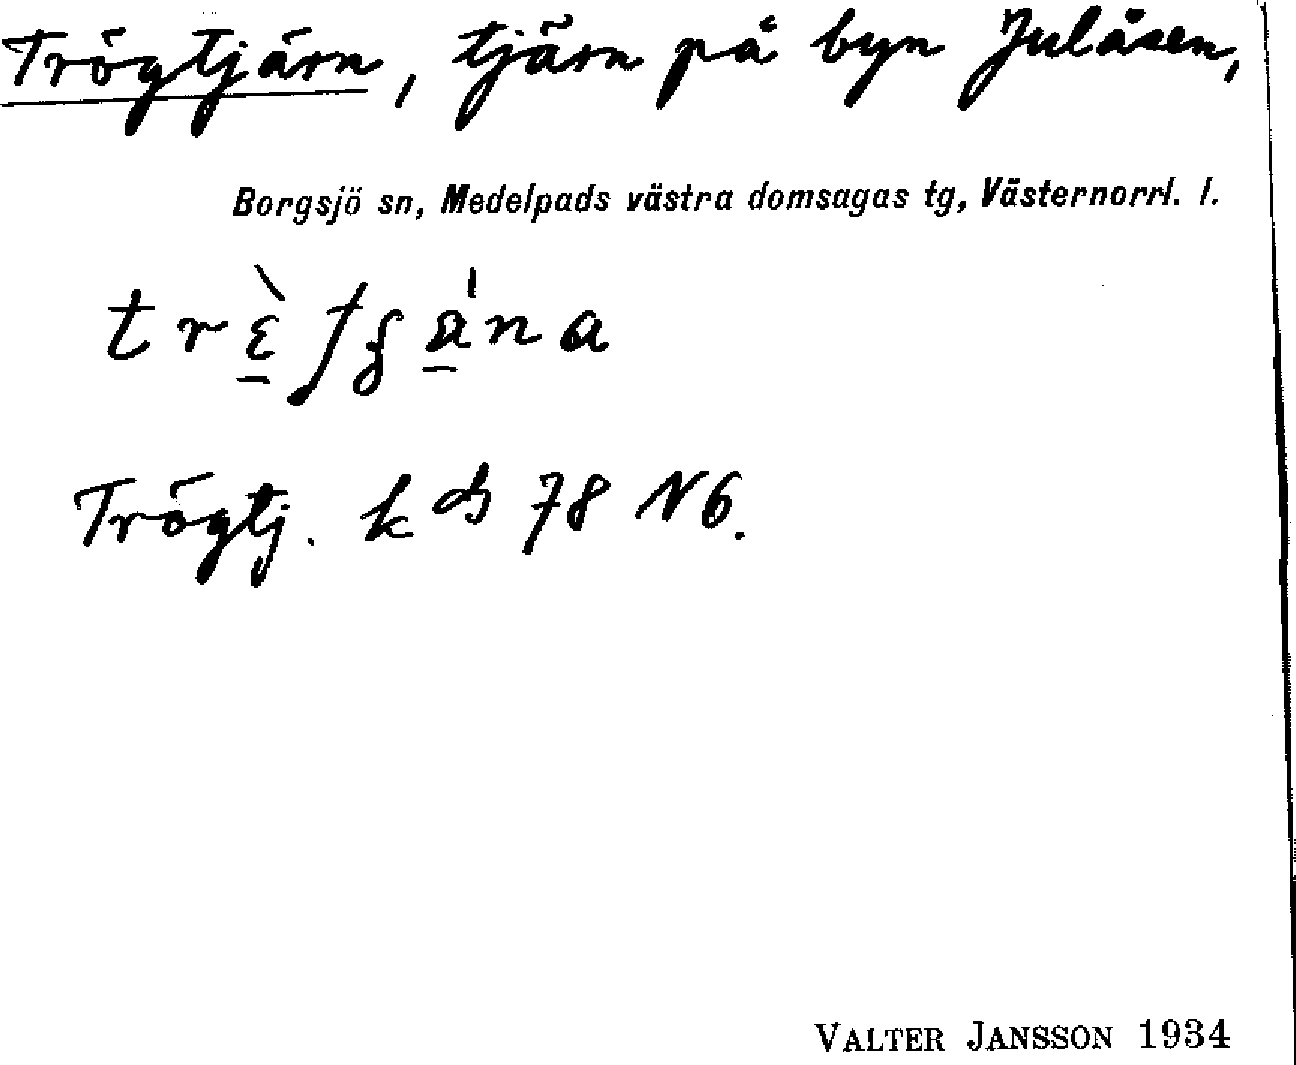 Trögtjärn, tjärn på byn Julåsen,
Borgsjö sn, Medelpads västra domsagas tg, Västernorrl. l.
Trögtj. k 78 N6.
VALTER JANSSON 1934